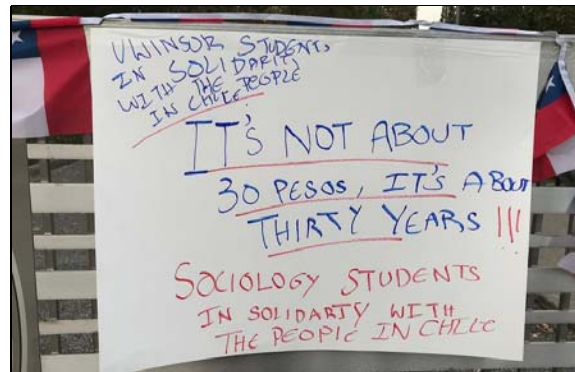 UWINSOR STUDENTS
IN SOLIDARITY
WITH THE PEOPLE
IN CHILE
IT'S NOT ABOUT
30 PESOS, IT'S ABOUT
THIRTY YEARS !!!
SOCIOLOGY STUDENTS
IN SOLIDARTY WITH
THE PEOPLE IN CHILE